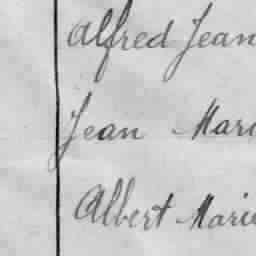 Alfred Jean
Jean Mari
Albert Marie